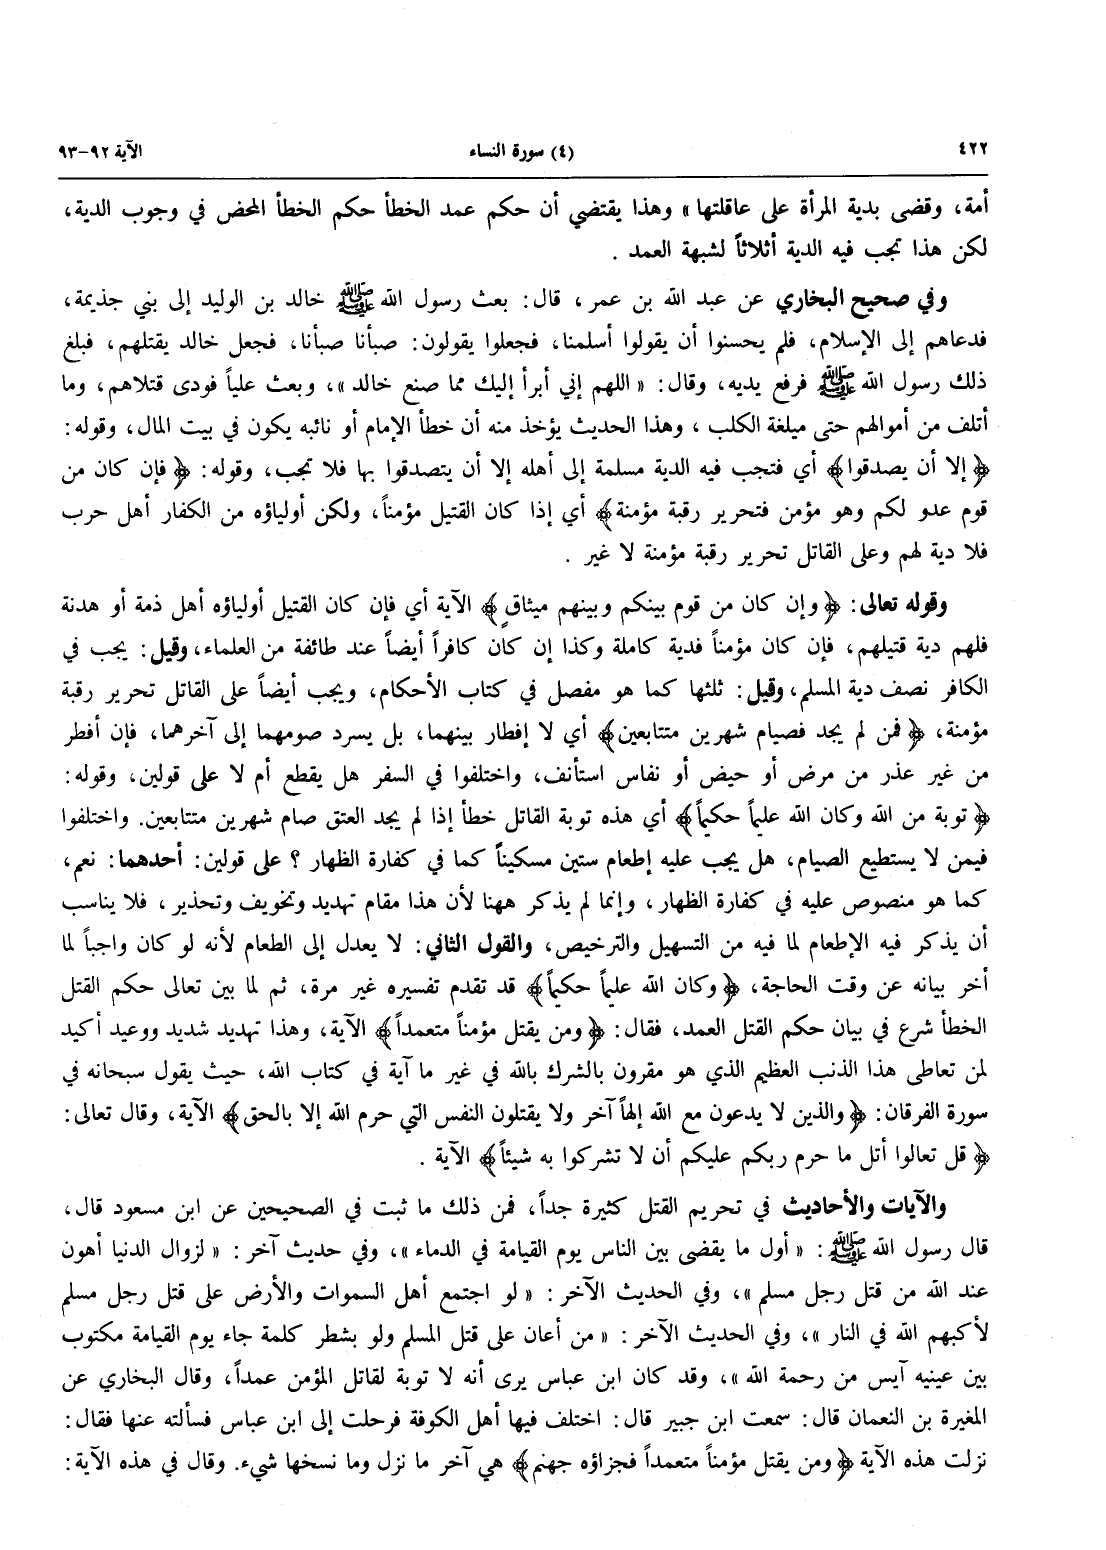 ٤٢٢ (٤) سورة النساء الآية ٩٢-٩٣
أمة، وقضى بدية المرأة على عاقلتها» وهذا يقتضي أن حكم عمد الخطأ حكم الخطأ المحض في وجوب الدية،
لكن هذا تجب فيه الدية أثلاثاً لشبهة العمد .
وفي صحيح البخاري عن عبد الله بن عمر، قال: بعث رسول الله ﷺ خالد بن الوليد إلى بني جذيمة،
فدعاهم إلى الإسلام، فلم يحسنوا أن يقولوا أسلمنا، فجعلوا يقولون: صبأنا صبأنا، فجعل خالد يقتلهم، فبلغ
ذلك رسول الله ﷺ فرفع يديه، وقال: « اللهم إني أبرأ إليك مما صنع خالد »، وبعث علياً فودى قتلاهم، وما
أتلف من أموالهم حتى ميلغة الكلب ، وهذا الحديث يؤخذ منه أن خطأ الإمام أو نائبه يكون في بيت المال، وقوله:
﴿إلا أن يصدقوا﴾ أي فتجب فيه الدية مسلمة إلى أهله إلا أن يتصدقوا بها فلا تجب، وقوله: ﴿فإن كان من
قوم عدو لكم وهو مؤمن فتحرير رقبة مؤمنة﴾ أي إذا كان القتيل مؤمناً، ولكن أولياؤه من الكفار أهل حرب
فلا دية لهم وعلى القاتل تحرير رقبة مؤمنة لا غير .
وقوله تعالى: ﴿وإن كان من قوم بينكم وبينهم ميثاقٍ﴾ الآية أي فإن كان القتيل أولياؤه أهل ذمة أو هدنة
فلهم دية قتيلهم، فإن كان مؤمناً فدية كاملة وكذا إن كان كافراً أيضاً عند طائفة من العلماء، وقيل: يجب في
الكافر نصف دية المسلم، وقيل: ثلثها كما هو مفصل في كتاب الأحكام، ويجب أيضاً على القاتل تحرير رقبة
مؤمنة، ﴿فمن لم يجد فصيام شهرين متتابعين﴾ أي لا إفطار بينهما، بل يسرد صومهما إلى آخرهما، فإن أفطر
من غير عذر من مرض أو حيض أو نفاس استأنف، واختلفوا في السفر هل يقطع أم لا على قولين، وقوله:
﴿توبة من الله وكان الله عليماً حكيماً﴾ أي هذه توبة القاتل خطأ إذا لم يجد العتق صام شهرين متتابعين. واختلفوا
فيمن لا يستطيع الصيام، هل يجب عليه إطعام ستين مسكيناً كما في كفارة الظهار ؟ على قولين: أحدهما: نعم،
كما هو منصوص عليه في كفارة الظهار، وإنما لم يذكر ههنا لأن هذا مقام تهديد وتخويف وتحذير ، فلا يناسب
أن يذكر فيه الإطعام لما فيه من التسهيل والترخيص، والقول الثاني: لا يعدل إلى الطعام لأنه لو كان واجباً لما
أخر بيانه عن وقت الحاجة، ﴿وكان الله عليماً حكيماً﴾ قد تقدم تفسيره غير مرة، ثم لما بين تعالى حكم القتل
الخطأ شرع في بيان حكم القتل العمد، فقال: ﴿ومن يقتل مؤمناً متعمداً﴾ الآية، وهذا تهديد شديد ووعيد أكيد
لمن تعاطى هذا الذنب العظيم الذي هو مقرون بالشرك بالله في غير ما آية في كتاب الله، حيث يقول سبحانه في
سورة الفرقان: ﴿والذين لا يدعون مع الله إلهاً آخر ولا يقتلون النفس التي حرم الله إلا بالحق﴾ الآية، وقال تعالى:
﴿قل تعالوا أتل ما حرم ربكم عليكم أن لا تشركوا به شيئاً﴾ الآية .
والآيات والأحاديث في تحريم القتل كثيرة جداً، فمن ذلك ما ثبت في الصحيحين عن ابن مسعود قال،
قال رسول الله ﷺ : « أول ما يقضى بين الناس يوم القيامة في الدماء »، وفي حديث آخر : « لزوال الدنيا أهون
عند الله من قتل رجل مسلم »، وفي الحديث الآخر : « لو اجتمع أهل السموات والأرض على قتل رجل مسلم
لأكبهم الله في النار »، وفي الحديث الآخر : « من أعان على قتل المسلم ولو بشطر كلمة جاء يوم القيامة مكتوب
بين عينيه آيس من رحمة الله »، وقد كان ابن عباس يرى أنه لا توبة لقاتل المؤمن عمداً، وقال البخاري عن
المغيرة بن النعمان قال: سمعت ابن جبير قال: اختلف فيها أهل الكوفة فرحلت إلى ابن عباس فسألته عنها فقال:
نزلت هذه الآية ﴿ومن يقتل مؤمناً متعمداً فجزاؤه جهنم﴾ هي آخر ما نزل وما نسخها شيء. وقال في هذه الآية: